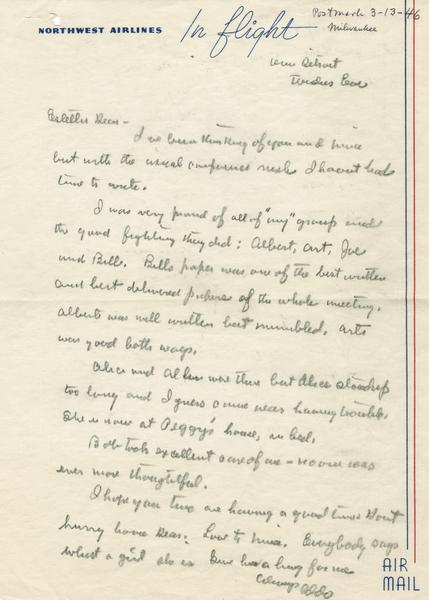 Postmark 3-13-46
Milwaukee
NORTHWEST AIRLINES In flight
over Detroit
Tuesdus Eve
Dear -
I've been thinking of you and
but with the usual conference rush I havent had
time to write.
I was very proud of all of "my" group and
the good fighting they did: Albert, Art, Joe
and Bill. Bills paper was one of the best written
and best delivered papers of the whole meeting.
Alberts was well written but mumbled. Arts
was good both ways.
Alice and were there but Alice stood up
too long and I guess is now having trouble.
She is now at Peggy's house, in bed.
Bob took excellent care of me - no one was
ever more thoughtful.
I hope you two are having a good time. Dont
hurry home Dear. Love to . Everybody says
what a girl she is. Give her a hug for me
Always
AIR
MAIL